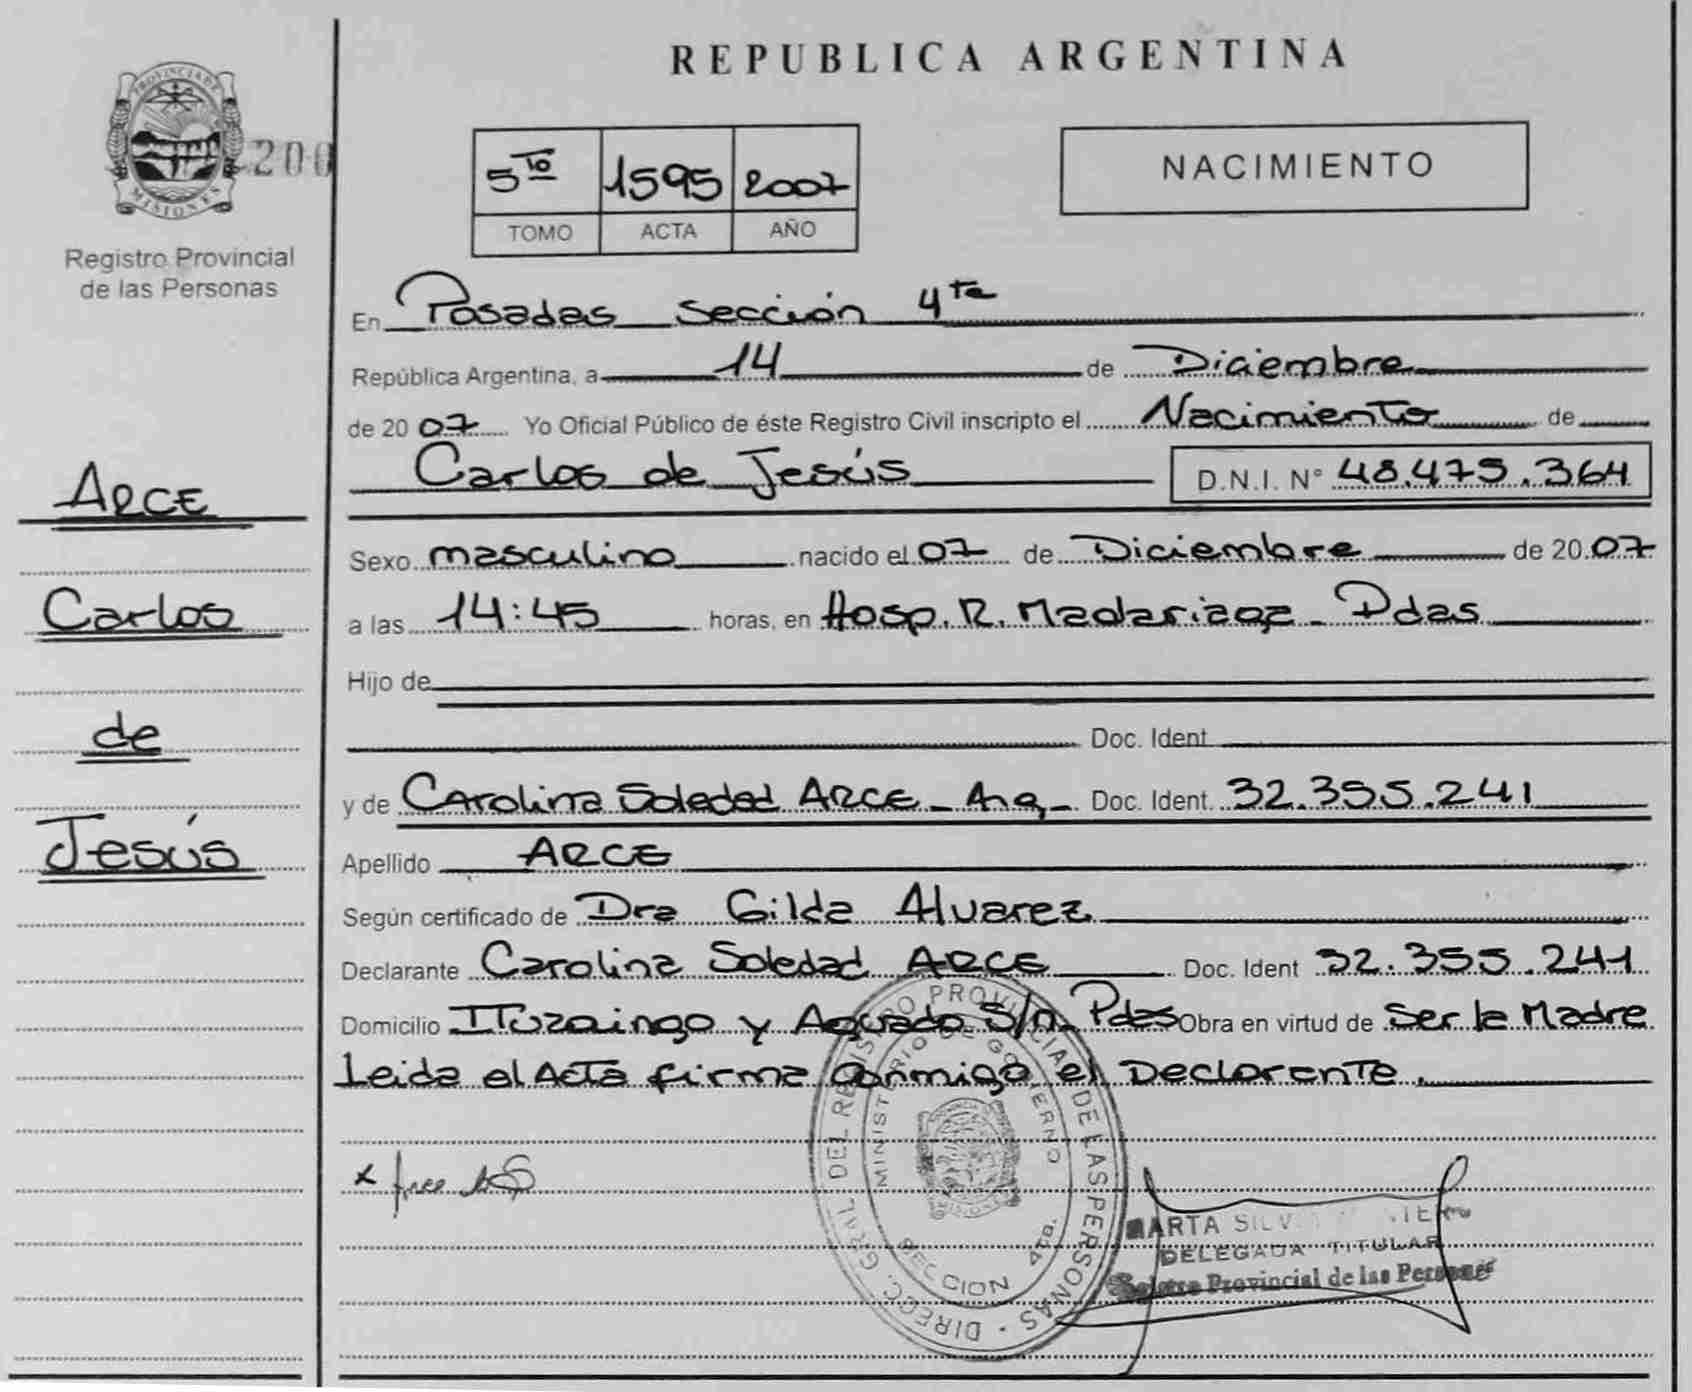 REPUBLICA ARGENTINA
PROVINCIA DE
MISIONES
200
Registro Provincial
de las Personas
5to 1595 2007
TOMO ACTA AÑO
NACIMIENTO
En Posadas Sección 4ta
República Argentina, a 14 de Diciembre
de 2007 Yo Oficial Público de éste Registro Civil inscripto el Nacimiento de
Carlos de Jesús D.N.I. N° 48.475.364
ARCE
Carlos
de
Jesús
Sexo masculino nacido el 07 de Diciembre de 2007
a las 14:45 horas, en Hosp. R. Madariaga - Pdas
Hijo de
Doc. Ident
y de Carolina Soledad ARCE - Arg - Doc. Ident. 32.355.241
Apellido ARCE
Según certificado de Dra Gilda Alvarez
Declarante Carolina Soledad ARCE Doc. Ident 32.355.241
Domicilio ITuzaingo y Aguado S/n - Pdas Obra en virtud de Ser la Madre
Leida el Acta firma conmigo el Declarente.
x Arce
DIRECC. GRAL. DEL REGISTRO PROVINCIAL DE LAS PERSONAS
MINISTERIO DE GOBIERNO
SECCION 4ta.
MARTA
DELEGADA TITULAR
Provincial de las Personas